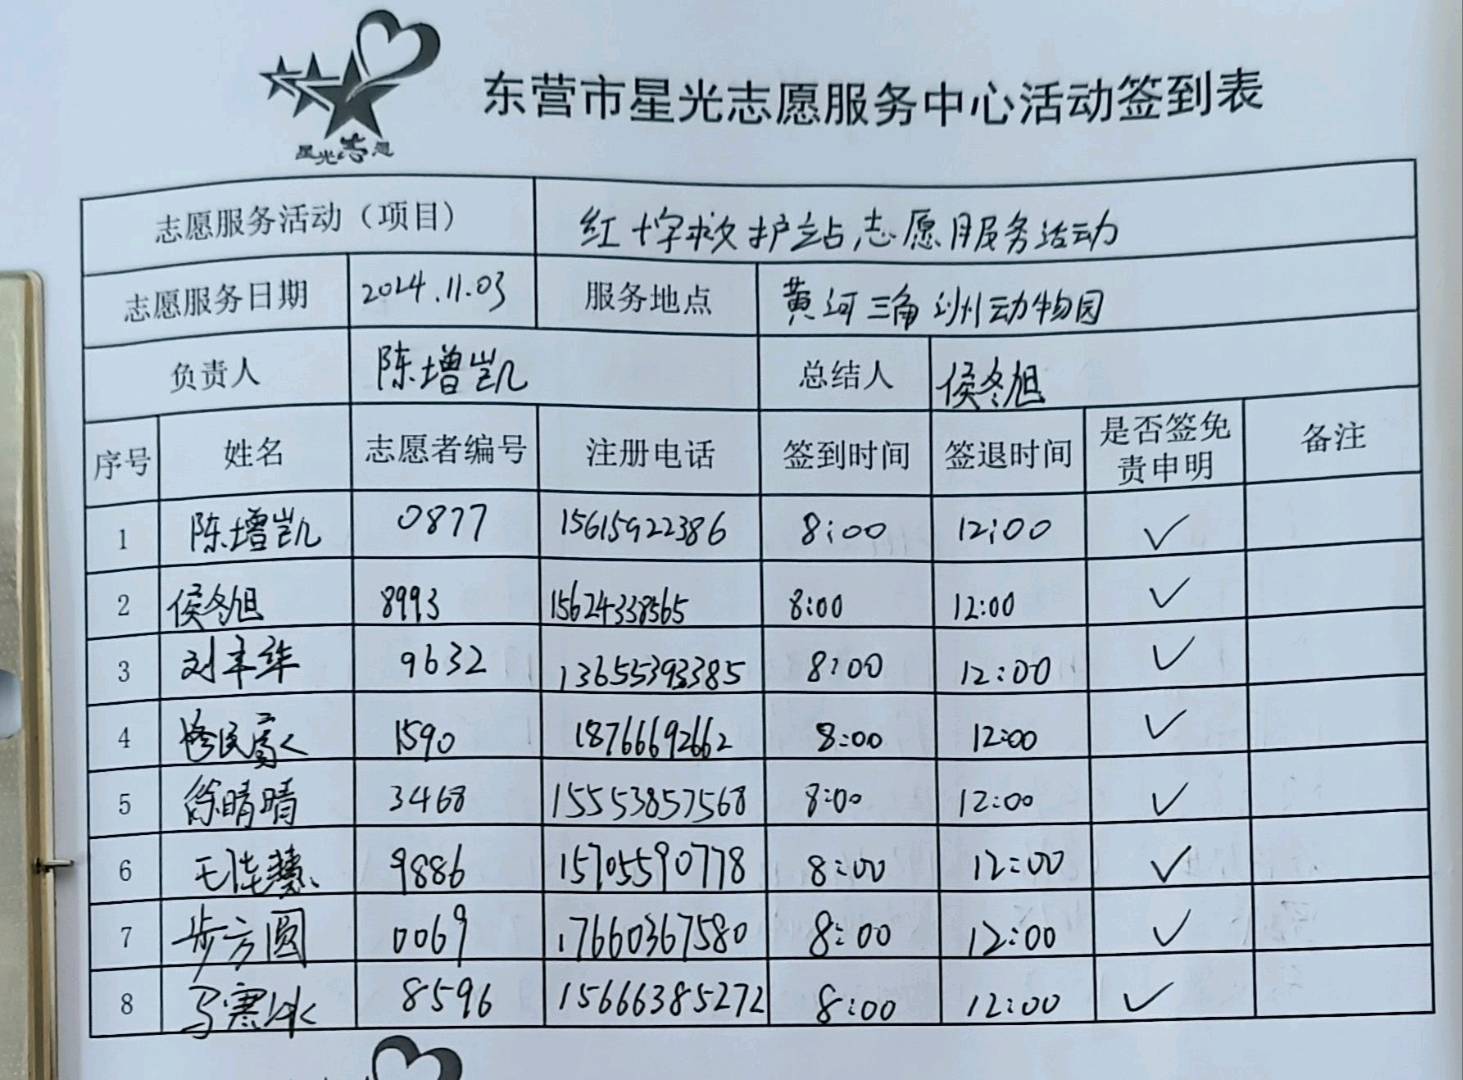 星光志愿
东营市星光志愿服务中心活动签到表
志愿服务活动（项目） 红十字救护站志愿服务活动
志愿服务日期 2024.11.03 服务地点 黄河三角洲动物园
负责人 陈增凯 总结人 侯冬旭
序号 姓名 志愿者编号 注册电话 签到时间 签退时间 是否签免责申明 备注
1 陈增凯 0877 15615922386 8:00 12:00 ✓
2 侯冬旭 8993 15624338565 8:00 12:00 ✓
3 刘丰华 9632 13655393385 8:00 12:00 ✓
4 1590 18766692662 8:00 12:00 ✓
5 徐晴晴 3468 15553857568 8:00 12:00 ✓
6 9886 15705590778 8:00 12:00 ✓
7 步方圆 0069 17660367580 8:00 12:00 ✓
8 马寒冰 8596 15666385272 8:00 12:00 ✓